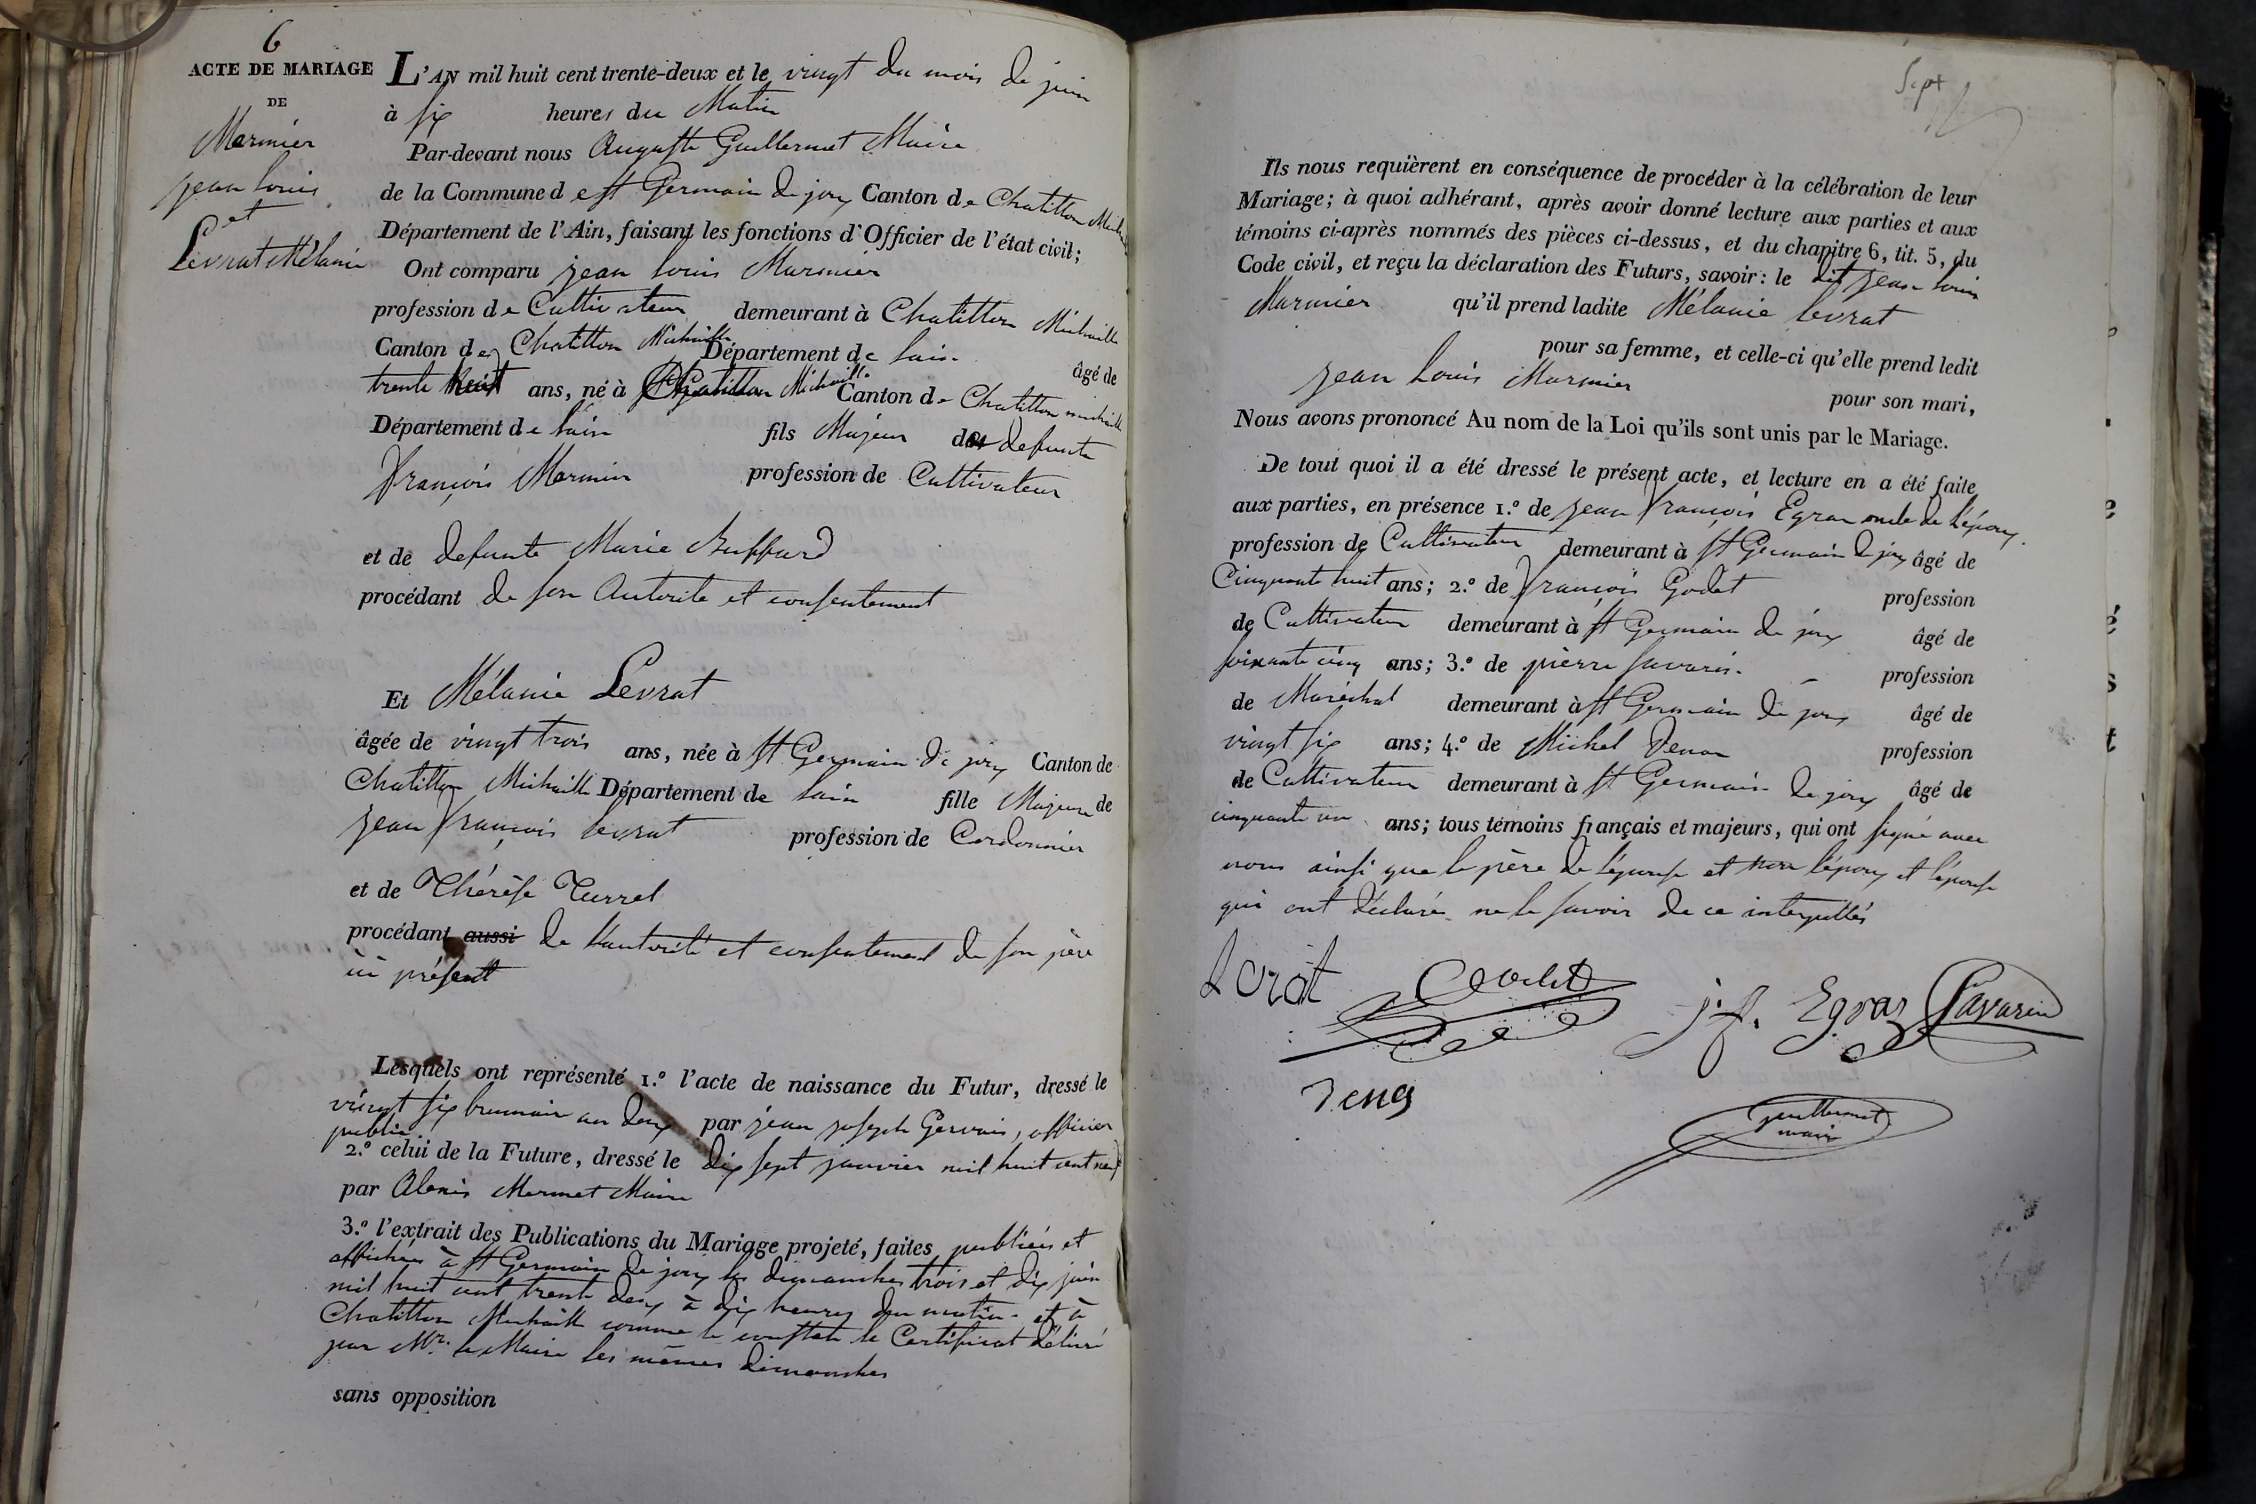 6
ACTE DE MARIAGE
DE
Marmier
jean louis
et
Levrat Mélanie
L'AN mil huit cent trente-deux et le vingt du mois de juin
à six heures du Matin
Par-devant nous Auguste Guillermet Maire
de la Commune de st Germain de joux Canton de Chatillon Michaille
Département de l'Ain, faisant les fonctions d'Officier de l'état civil;
Ont comparu jean louis Marmier
profession de Cultivateur demeurant à Chatillon Michaille
Canton de Chatillon Michaille Département de lain âgé de
trente huit ans, né à Chatillon Michaille Canton de Chatillon michaille
Département de lain fils Majeur de defunts
françois Marmier profession de Cultivateur
et de defunte Marie Buffard
procédant de son Autorite et consentement
Et Mélanie Levrat
âgée de vingt trois ans, née à st Germain de joux Canton de
Chatillon Michaille Département de lain fille Majeure de
jean françois levrat profession de Cordonnier
et de Thérèse Turrel
procédant aussi de l'autorité et consentement de son père
ici présent
Lesquels ont représenté 1.º l'acte de naissance du Futur, dressé le
vingt six brumaire an deux par jean joseph Gervais, officier
public
2.º celui de la Future, dressé le dix sept janvier mil huit cent neuf
par Alexis Mermet Maire
3.º l'extrait des Publications du Mariage projeté, faites publiées et
affichées à st Germain de joux les dimanches trois et dix juin
mil huit cent trente deux à dix heures du matin et à
Chatillon Michaille comme le constate le Certificat délivré
par Mr. le Maire les mêmes dimanches
sans opposition
Sept
Ils nous requièrent en conséquence de procéder à la célébration de leur
Mariage; à quoi adhérant, après avoir donné lecture aux parties et aux
témoins ci-après nommés des pièces ci-dessus, et du chapitre 6, tit. 5, du
Code civil, et reçu la déclaration des Futurs, savoir: le dit jean louis
Marmier qu'il prend ladite Mélanie levrat
pour sa femme, et celle-ci qu'elle prend ledit
jean Louis Marmier pour son mari,
Nous avons prononcé Au nom de la Loi qu'ils sont unis par le Mariage.
De tout quoi il a été dressé le présent acte, et lecture en a été faite
aux parties, en présence 1.º de jean françois Egraz oncle de l'époux
profession de Cultivateur demeurant à st Germain de joux âgé de
Cinquante huit ans; 2.º de françois Godet profession
de Cultivateur demeurant à st Germain de joux âgé de
soixante cinq ans; 3.º de pierre savarin profession
de Maréchal demeurant à st Germain de joux âgé de
vingt six ans; 4.º de Michel Tenon profession
de Cultivateur demeurant à st Germain de joux âgé de
cinquante un ans; tous témoins français et majeurs, qui ont signé avec
nous ainsi que le père de l'épouse et non l'époux et l'épouse
qui ont déclaré ne le savoir de ce interpellés
Godet
j. f. Egraz Savarin
guillermet
maire